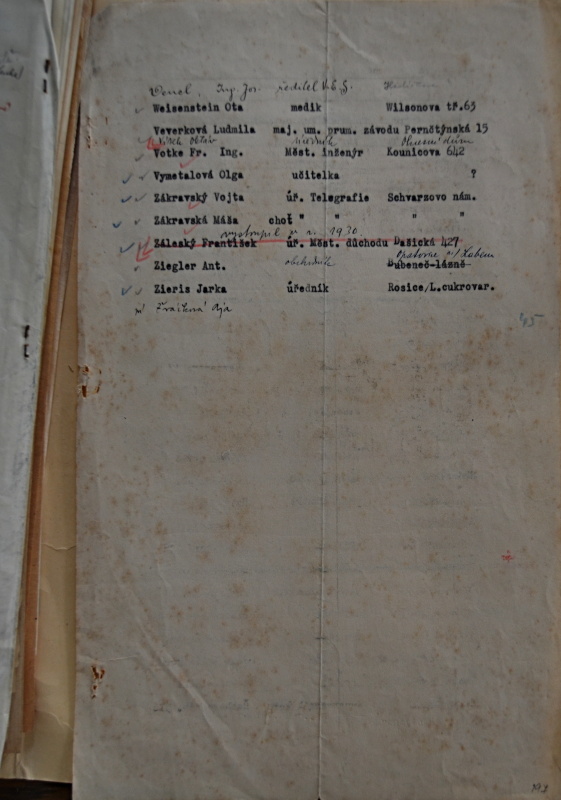 Vencl, Ing. Jos. ředitel
Weisenstein Ota medik Wilsonova tř.63
Veverková Ludmila maj. um. prum. závodu Pernštýnská 15
Votke Fr. Ing. Měst. inženýr Kounicova 642
Vymetalová Olga učitelka ?
Zákravský Vojta úř. Telegrafie Schvarzovo nám.
Zákravská Máša choť " " " "
vystoupil r. 1930.
Záleský František úř. Měst. důchodu Dašická 427
n/Labem
Ziegler Ant. obchodník Bubeneč-lázně
Zieris Jarka úředník Rosice/L.cukrovar.
45